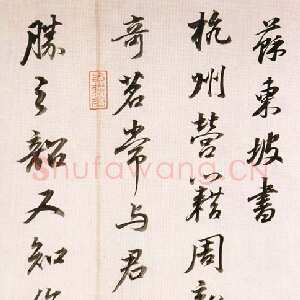 蘇東坡書
杭州營籍周
奇茗常与君
勝之韶又知
Shufawang.CN